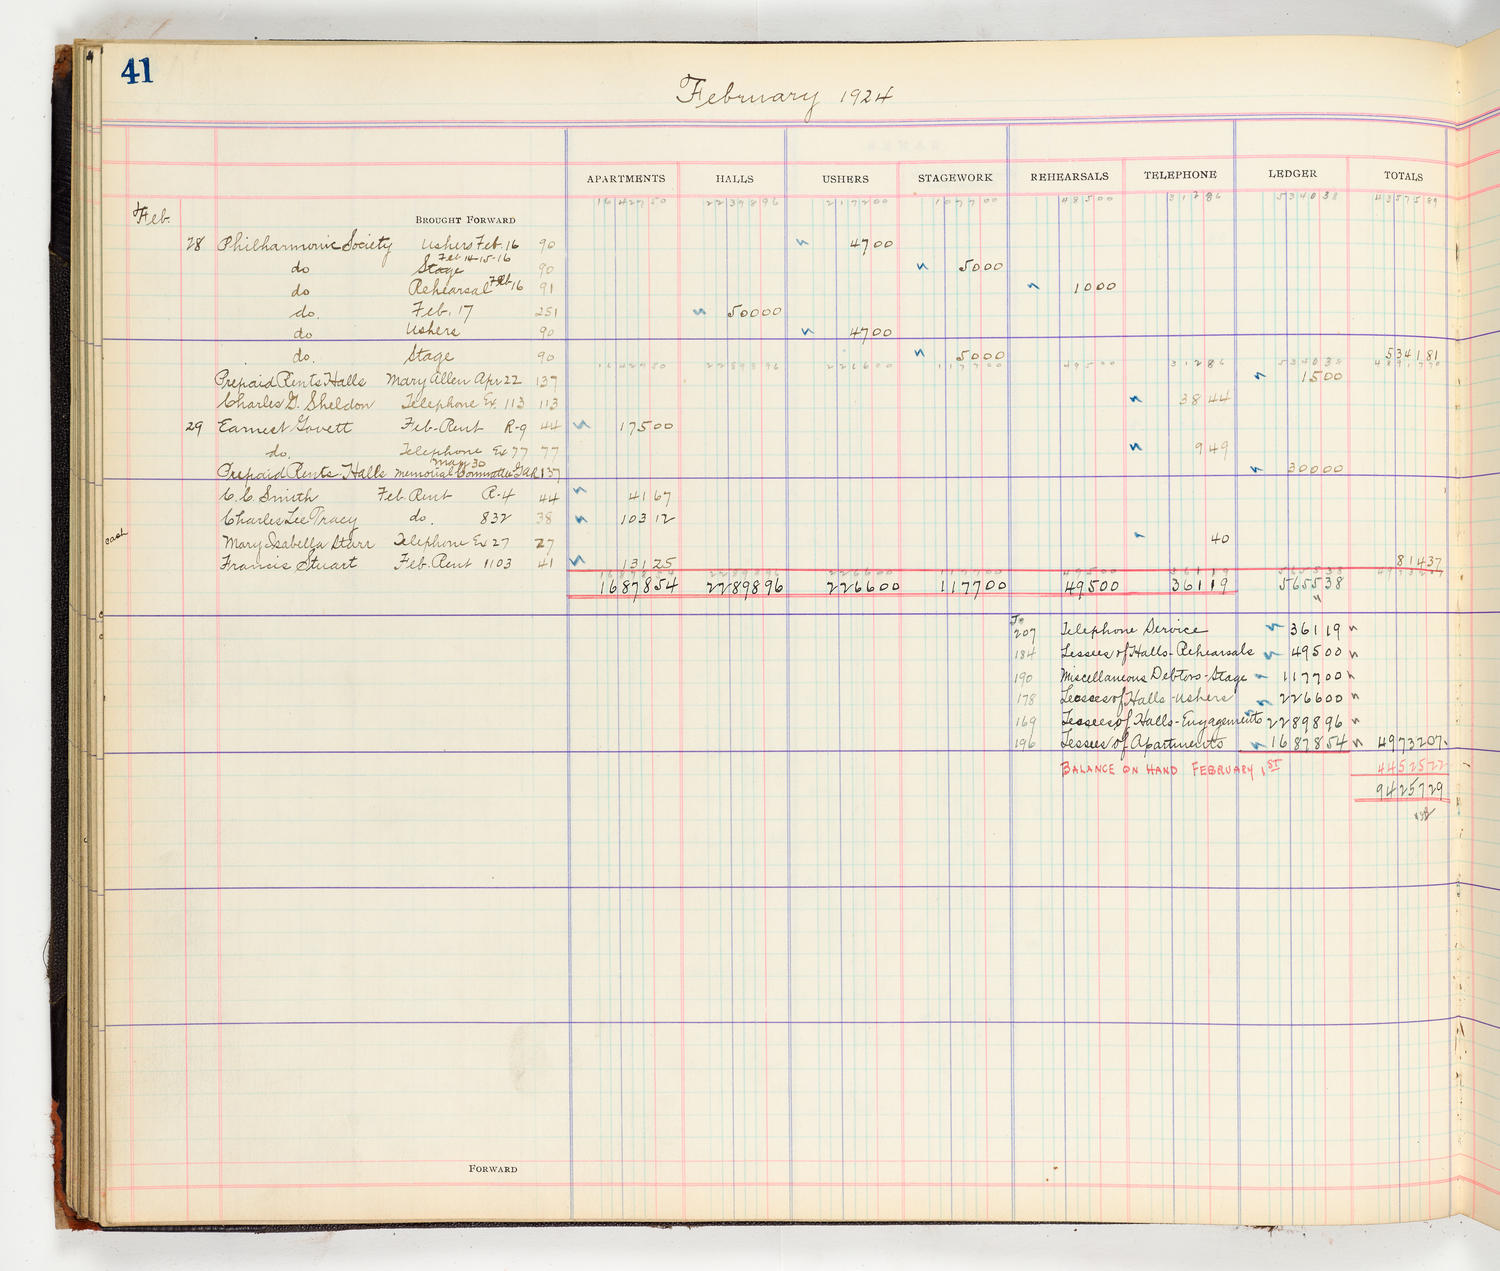 41
February 1924
APARTMENTS HALLS USHERS STAGEWORK REHEARSALS TELEPHONE LEDGER TOTALS
1642750 2239896 217200 107700 48500 31286 534038 4357589
Feb. BROUGHT FORWARD
28 Philharmonic Society Ushers Feb. 16 90 4700
Feb 14-15-16
do Stage 90 5000
do Rehearsal Feb 16 91 1000
do. Feb. 17 251 50000
do Ushers 90 4700
do. Stage 90 5000 534181
1642750 2289896 226600 117700 49500 31286 534038
Prepaid Rents Halls Mary Allen Apr 22 137 1500
Charles G. Sheldon Telephone Ex. 113 113 3844
29 Earnest Govett Feb-Rent R-9 44 17500
do. Telephone Ex 77 77 949
May 30
Prepaid Rents Halls Memorial Committee GAR 137 30000
C. C. Smith Feb Rent R-4 44 4167
Charles Lee Tracy do. 832 38 10312
cash
Mary Isabella Starr Telephone Ex 27 27 40
Francis Stuart Feb. Rent 1103 41 13125 81437
1687854 2289896 226600 117700 49500 36119 565538
To
207 Telephone Service 36119
184 Lessees of Halls-Rehearsals 49500
190 Miscellaneous Debtors-Stage 117700
178 Lessees of Halls-Ushers 226600
169 Lessees of Halls-Engagements 2289896
196 Lessees of Apartments 1687854 4973207
BALANCE ON HAND FEBRUARY 1ST 4452522
9425729
FORWARD